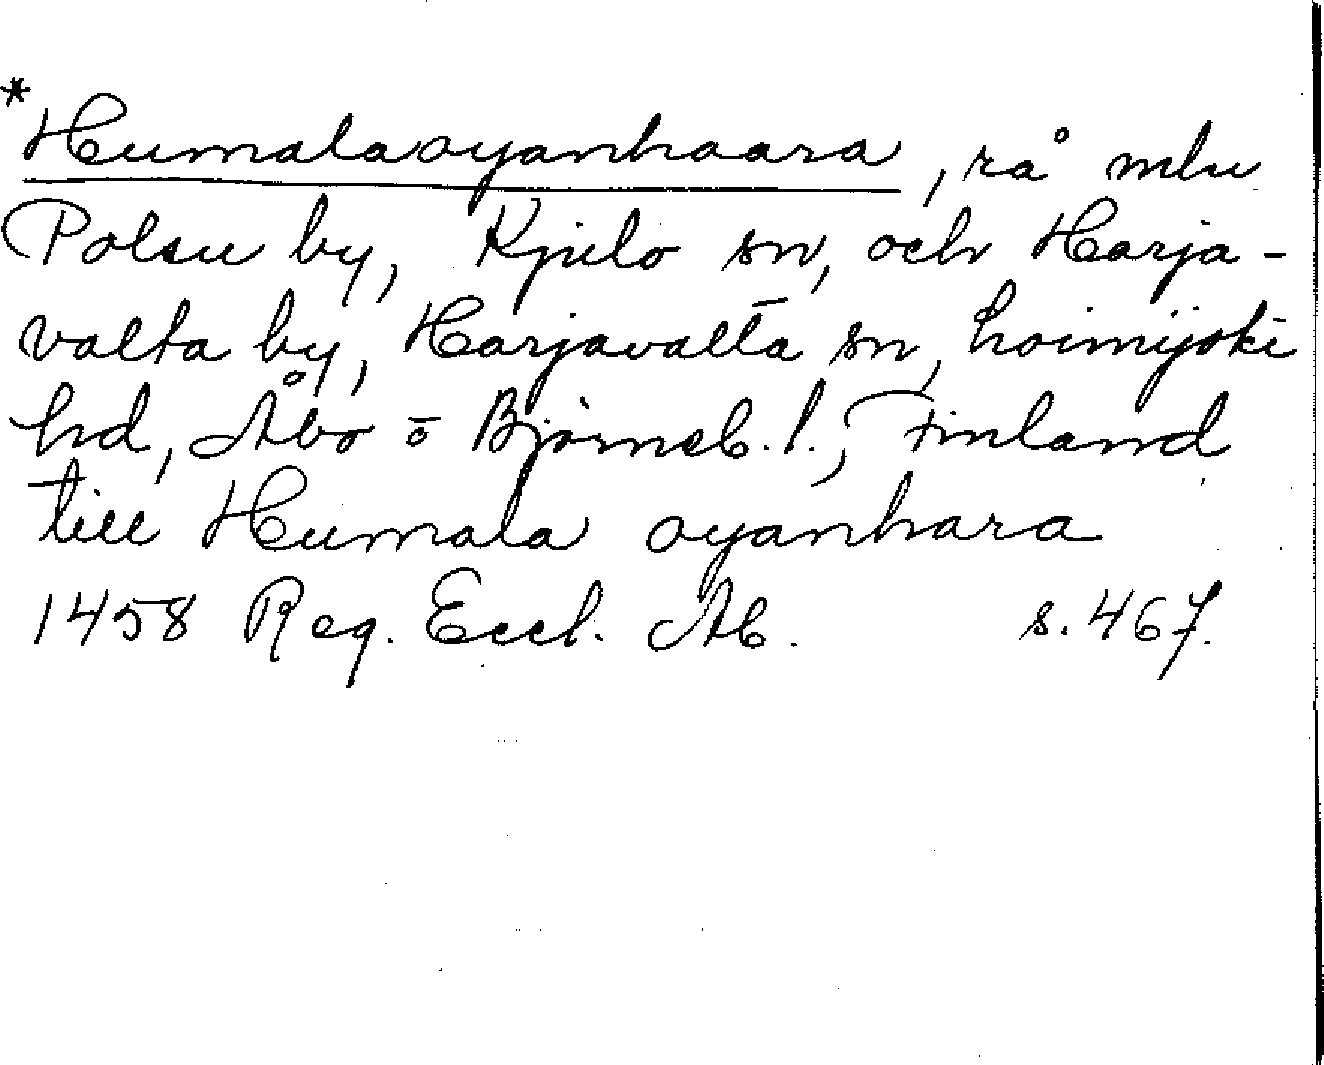 *Humalaoyanhaara, rå mlu
Polsu by, Kjulo sn, och Harja-
valta by, Harjavalta sn, Loimijoki
hd, Åbo o Björneb. l., Finland
till Humala oyanhara
1458 Reg. Eccl. Ab. s. 467.